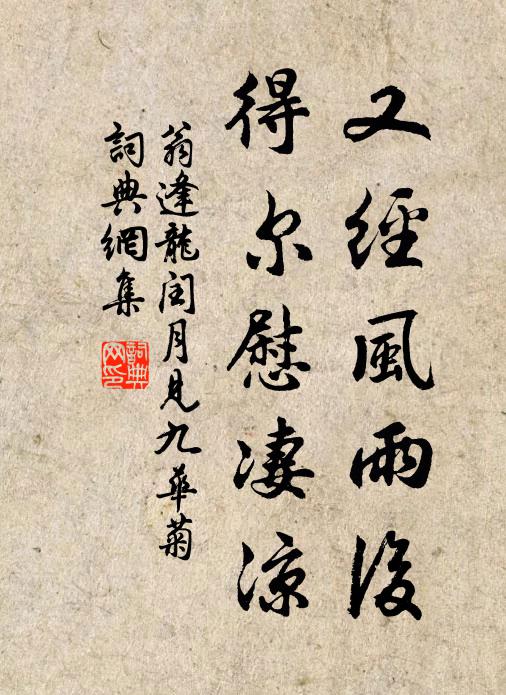 又經風雨後
得尔慰凄凉
翁逢龍閏月見九華菊
詞典網集
詞典網印